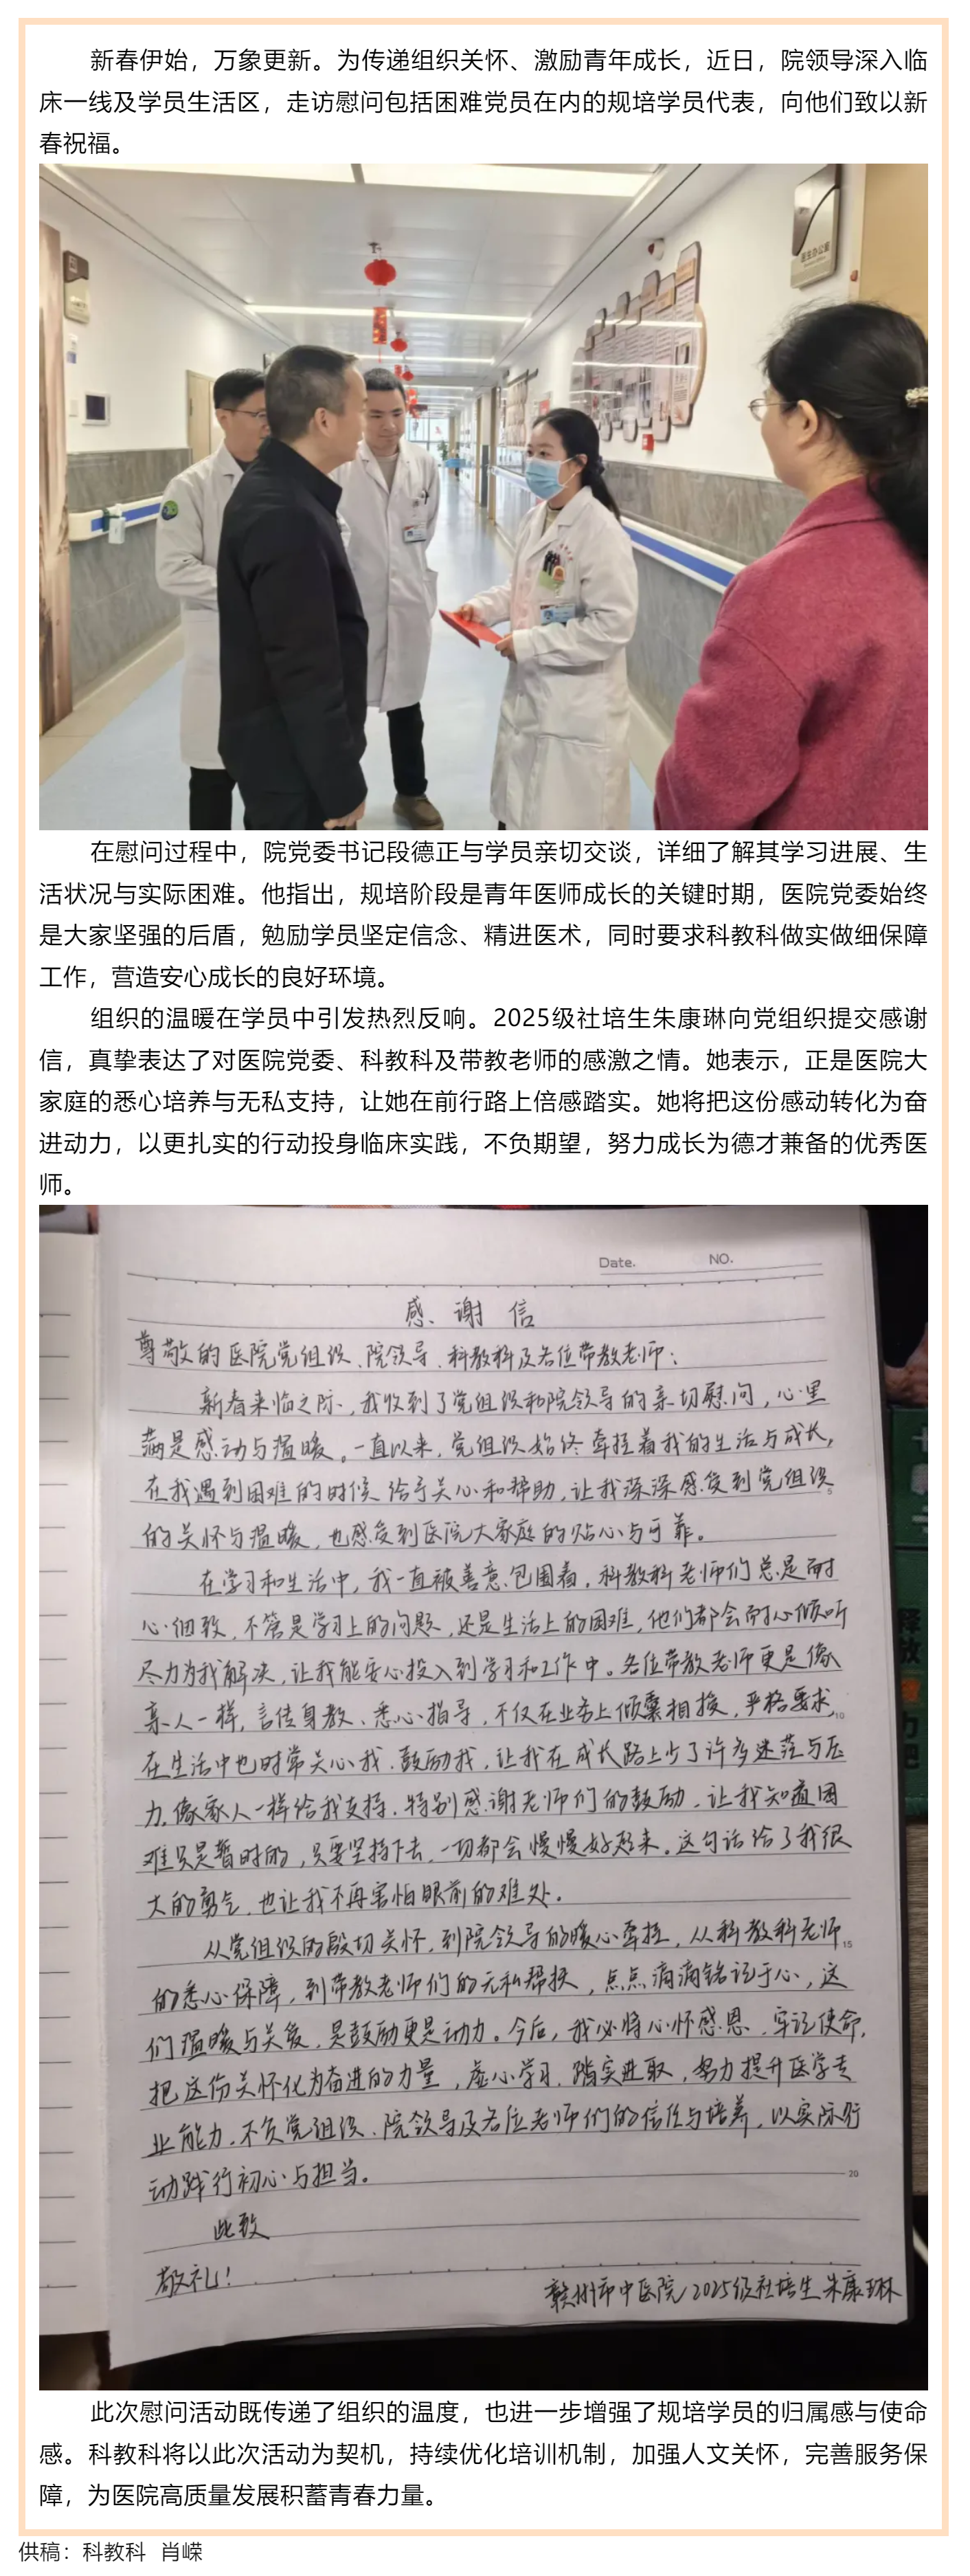 新春伊始，万象更新。为传递组织关怀、激励青年成长，近日，院领导深入临
床一线及学员生活区，走访慰问包括困难党员在内的规培学员代表，向他们致以新
春祝福。
医生办公室
在慰问过程中，院党委书记段德正与学员亲切交谈，详细了解其学习进展、生
活状况与实际困难。他指出，规培阶段是青年医师成长的关键时期，医院党委始终
是大家坚强的后盾，勉励学员坚定信念、精进医术，同时要求科教科做实做细保障
工作，营造安心成长的良好环境。
组织的温暖在学员中引发热烈反响。2025级社培生朱康琳向党组织提交感谢
信，真挚表达了对医院党委、科教科及带教老师的感激之情。她表示，正是医院大
家庭的悉心培养与无私支持，让她在前行路上倍感踏实。她将把这份感动转化为奋
进动力，以更扎实的行动投身临床实践，不负期望，努力成长为德才兼备的优秀医
师。
Date. NO.
感谢信
尊敬的医院党组织、院领导、科教科及各位带教老师：
新春来临之际，我收到了党组织和院领导的亲切慰问，心里
满是感动与温暖。一直以来，党组织始终牵挂着我的生活与成长，
在我遇到困难的时候给予关心和帮助，让我深深感受到党组织
5
的关怀与温暖，也感受到医院大家庭的贴心与可靠。
在学习和生活中，我一直被善意包围着，科教科老师们总是耐
心细致，不管是学习上的问题，还是生活上的困难，他们都会耐心倾听
尽力为我解决，让我能安心投入到学习和工作中。各位带教老师更是像
亲人一样，言传身教、悉心指导，不仅在业务上倾囊相授，严格要求，
10
在生活中也时常关心我、鼓励我，让我在成长路上少了许多迷茫与压
力，像家人一样给我支持，特别感谢老师们的鼓励，让我知道困
难只是暂时的，只要坚持下去，一切都会慢慢好起来。这句话给了我很
大的勇气，也让我不再害怕眼前的难处。
从党组织的殷切关怀，到院领导的暖心牵挂，从科教科老师
15
的悉心保障，到带教老师们的无私帮扶，点点滴滴铭记于心，这
们温暖与关爱，是鼓励更是动力。今后，我必将心怀感恩，牢记使命，
把这份关怀化为奋进的力量，虚心学习、踏实进取，努力提升医学专
业能力，不负党组织、院领导及各位老师们的信任与培养，以实际行
动践行初心与担当。
20
此致
敬礼！
赣州市中医院2025级社培生朱康琳
释放
力吧
此次慰问活动既传递了组织的温度，也进一步增强了规培学员的归属感与使命
感。科教科将以此次活动为契机，持续优化培训机制，加强人文关怀，完善服务保
障，为医院高质量发展积蓄青春力量。
供稿：科教科 肖嵘